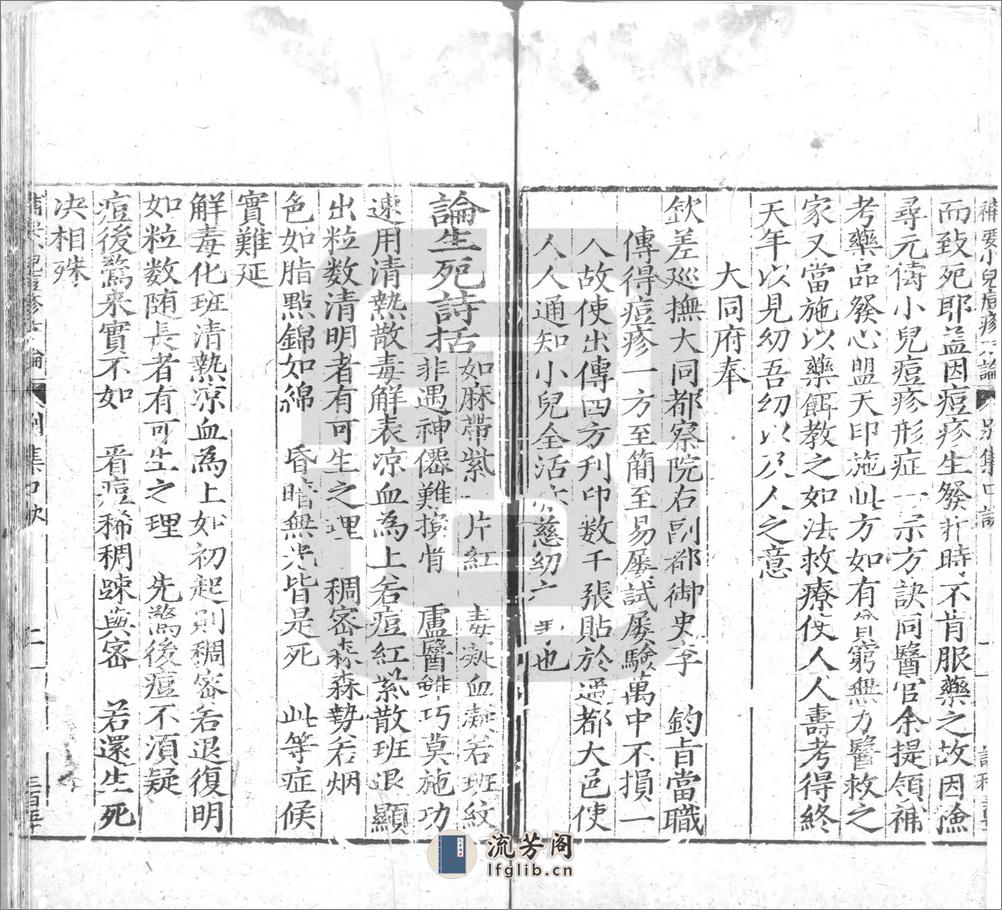 補要小兒痘疹方論 別集口訣
而致死耶益因痘疹生發熱時不肯服藥之故因漁
尋元儔小兒痘疹形症一宗方訣同醫官余提領補
考藥品發心盟天印施此方如有貧窮無力醫救之
家又當施以藥餌教之如法救療使人人壽考得終
天年以見幼吾幼以及人之意
大同府奉
欽差廵撫大同都察院右副都御史李 鈞旨當職
傳得痘疹一方至簡至易屡試屡驗萬中不損一
人故使出傳四方刋印数千張貼於過都大邑使
人人通知小兒全活 慈幼之 也
論生死詩括 如麻帶紫一片紅 毒凝血凝若班紋
非遇神僊難換骨 盧醫雖巧莫施功
速用清熱散毒解表凉血為上若痘紅紫散班退顯
出粒数清明者有可生之理 稠密森森勢若烟
色如脂點錦如綿 昏暗無光皆是死 此等症候
實難延
解毒化班清熱凉血為上如初起則稠密若退復明
如粒数随長者有可生之理 先驚後痘不湏疑
痘後驚来實不如 看痘稀稠踈與密 若還生死
决相殊
論 別集口訣 二
流芳阁
lfglib.cn